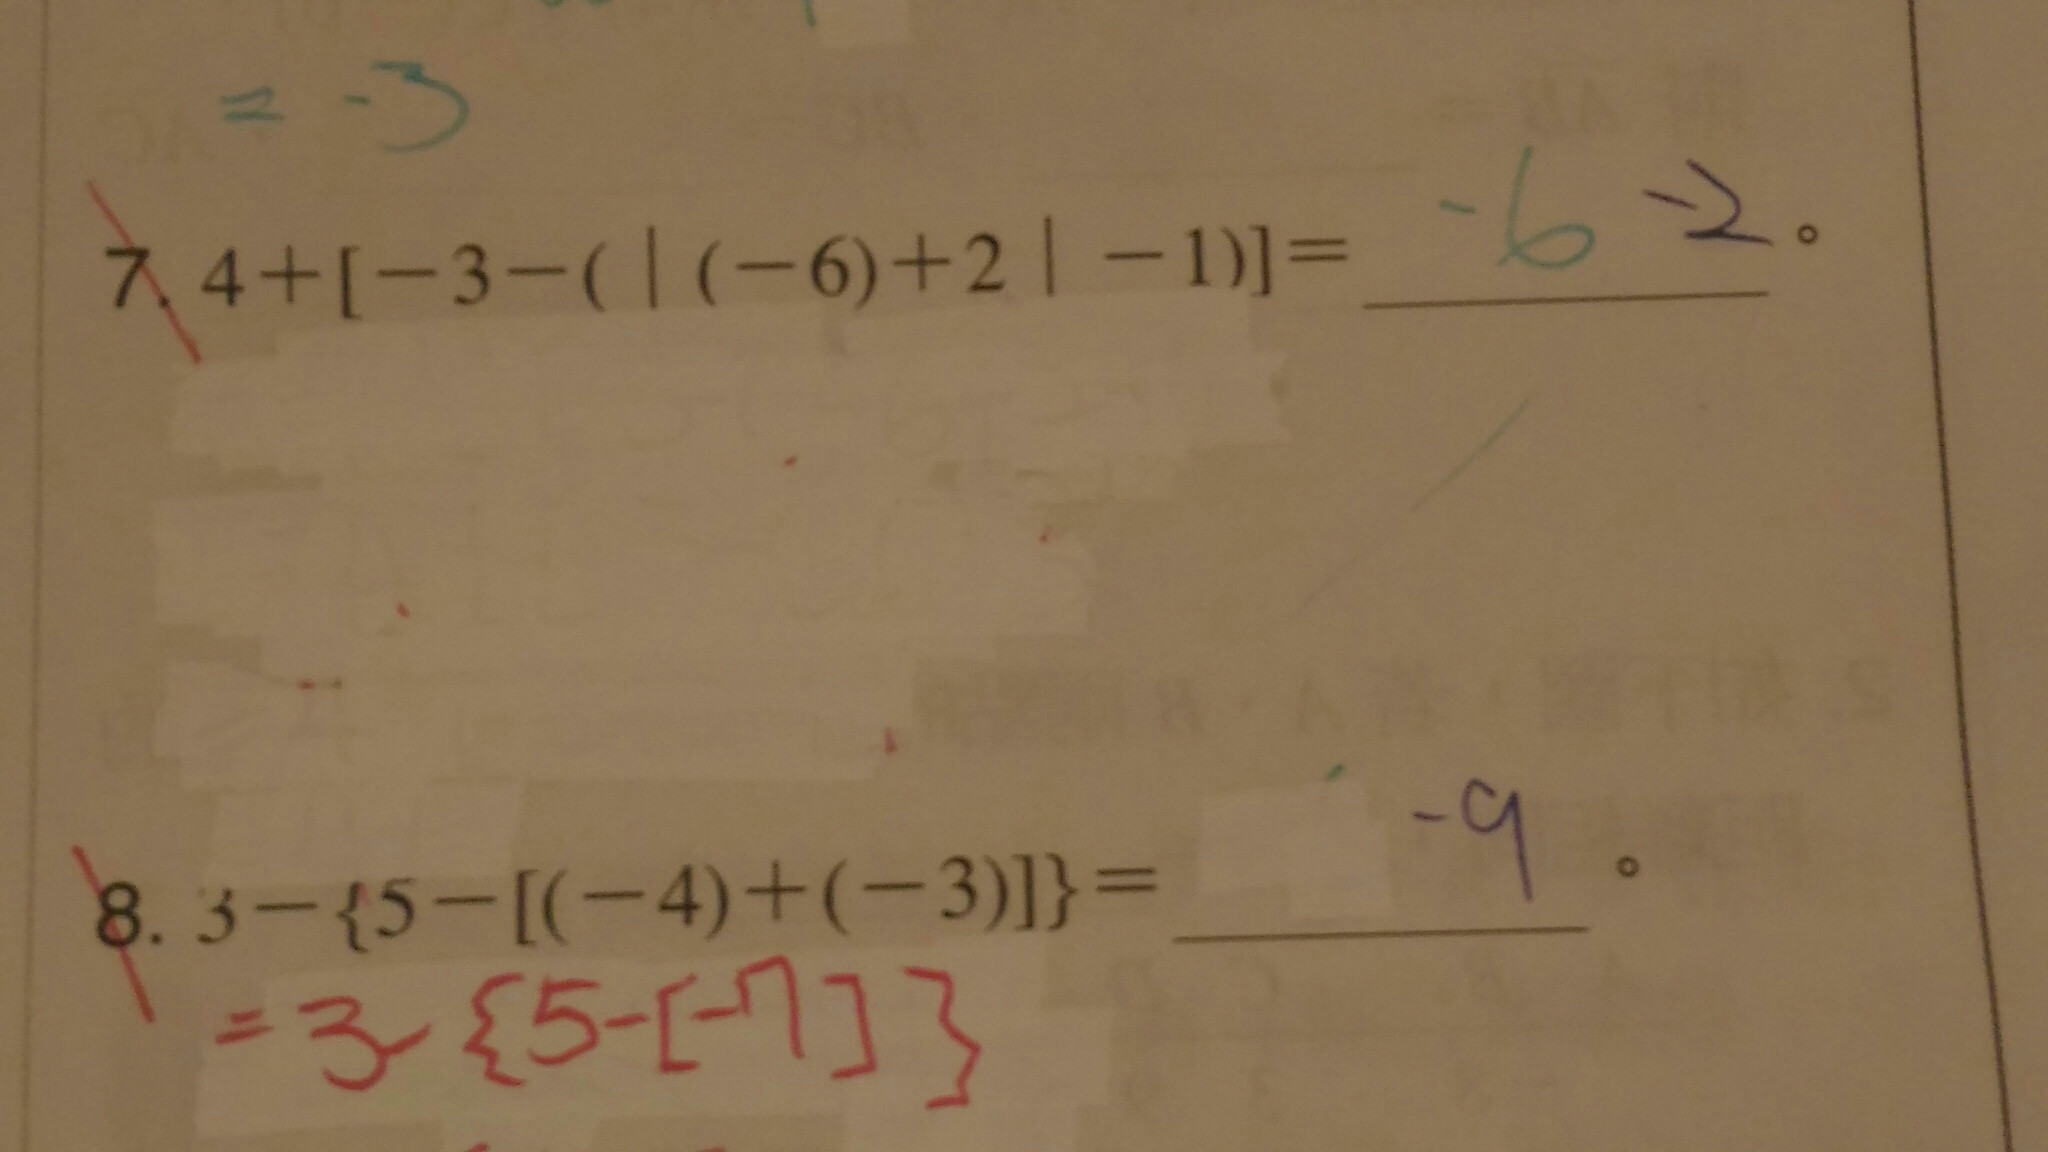 = -3
7. 4+[-3-(|(-6)+2|-1)]= -6 -2 。
8. 3-{5-[(-4)+(-3)]}= -9 。
=3-{5-[-7]}